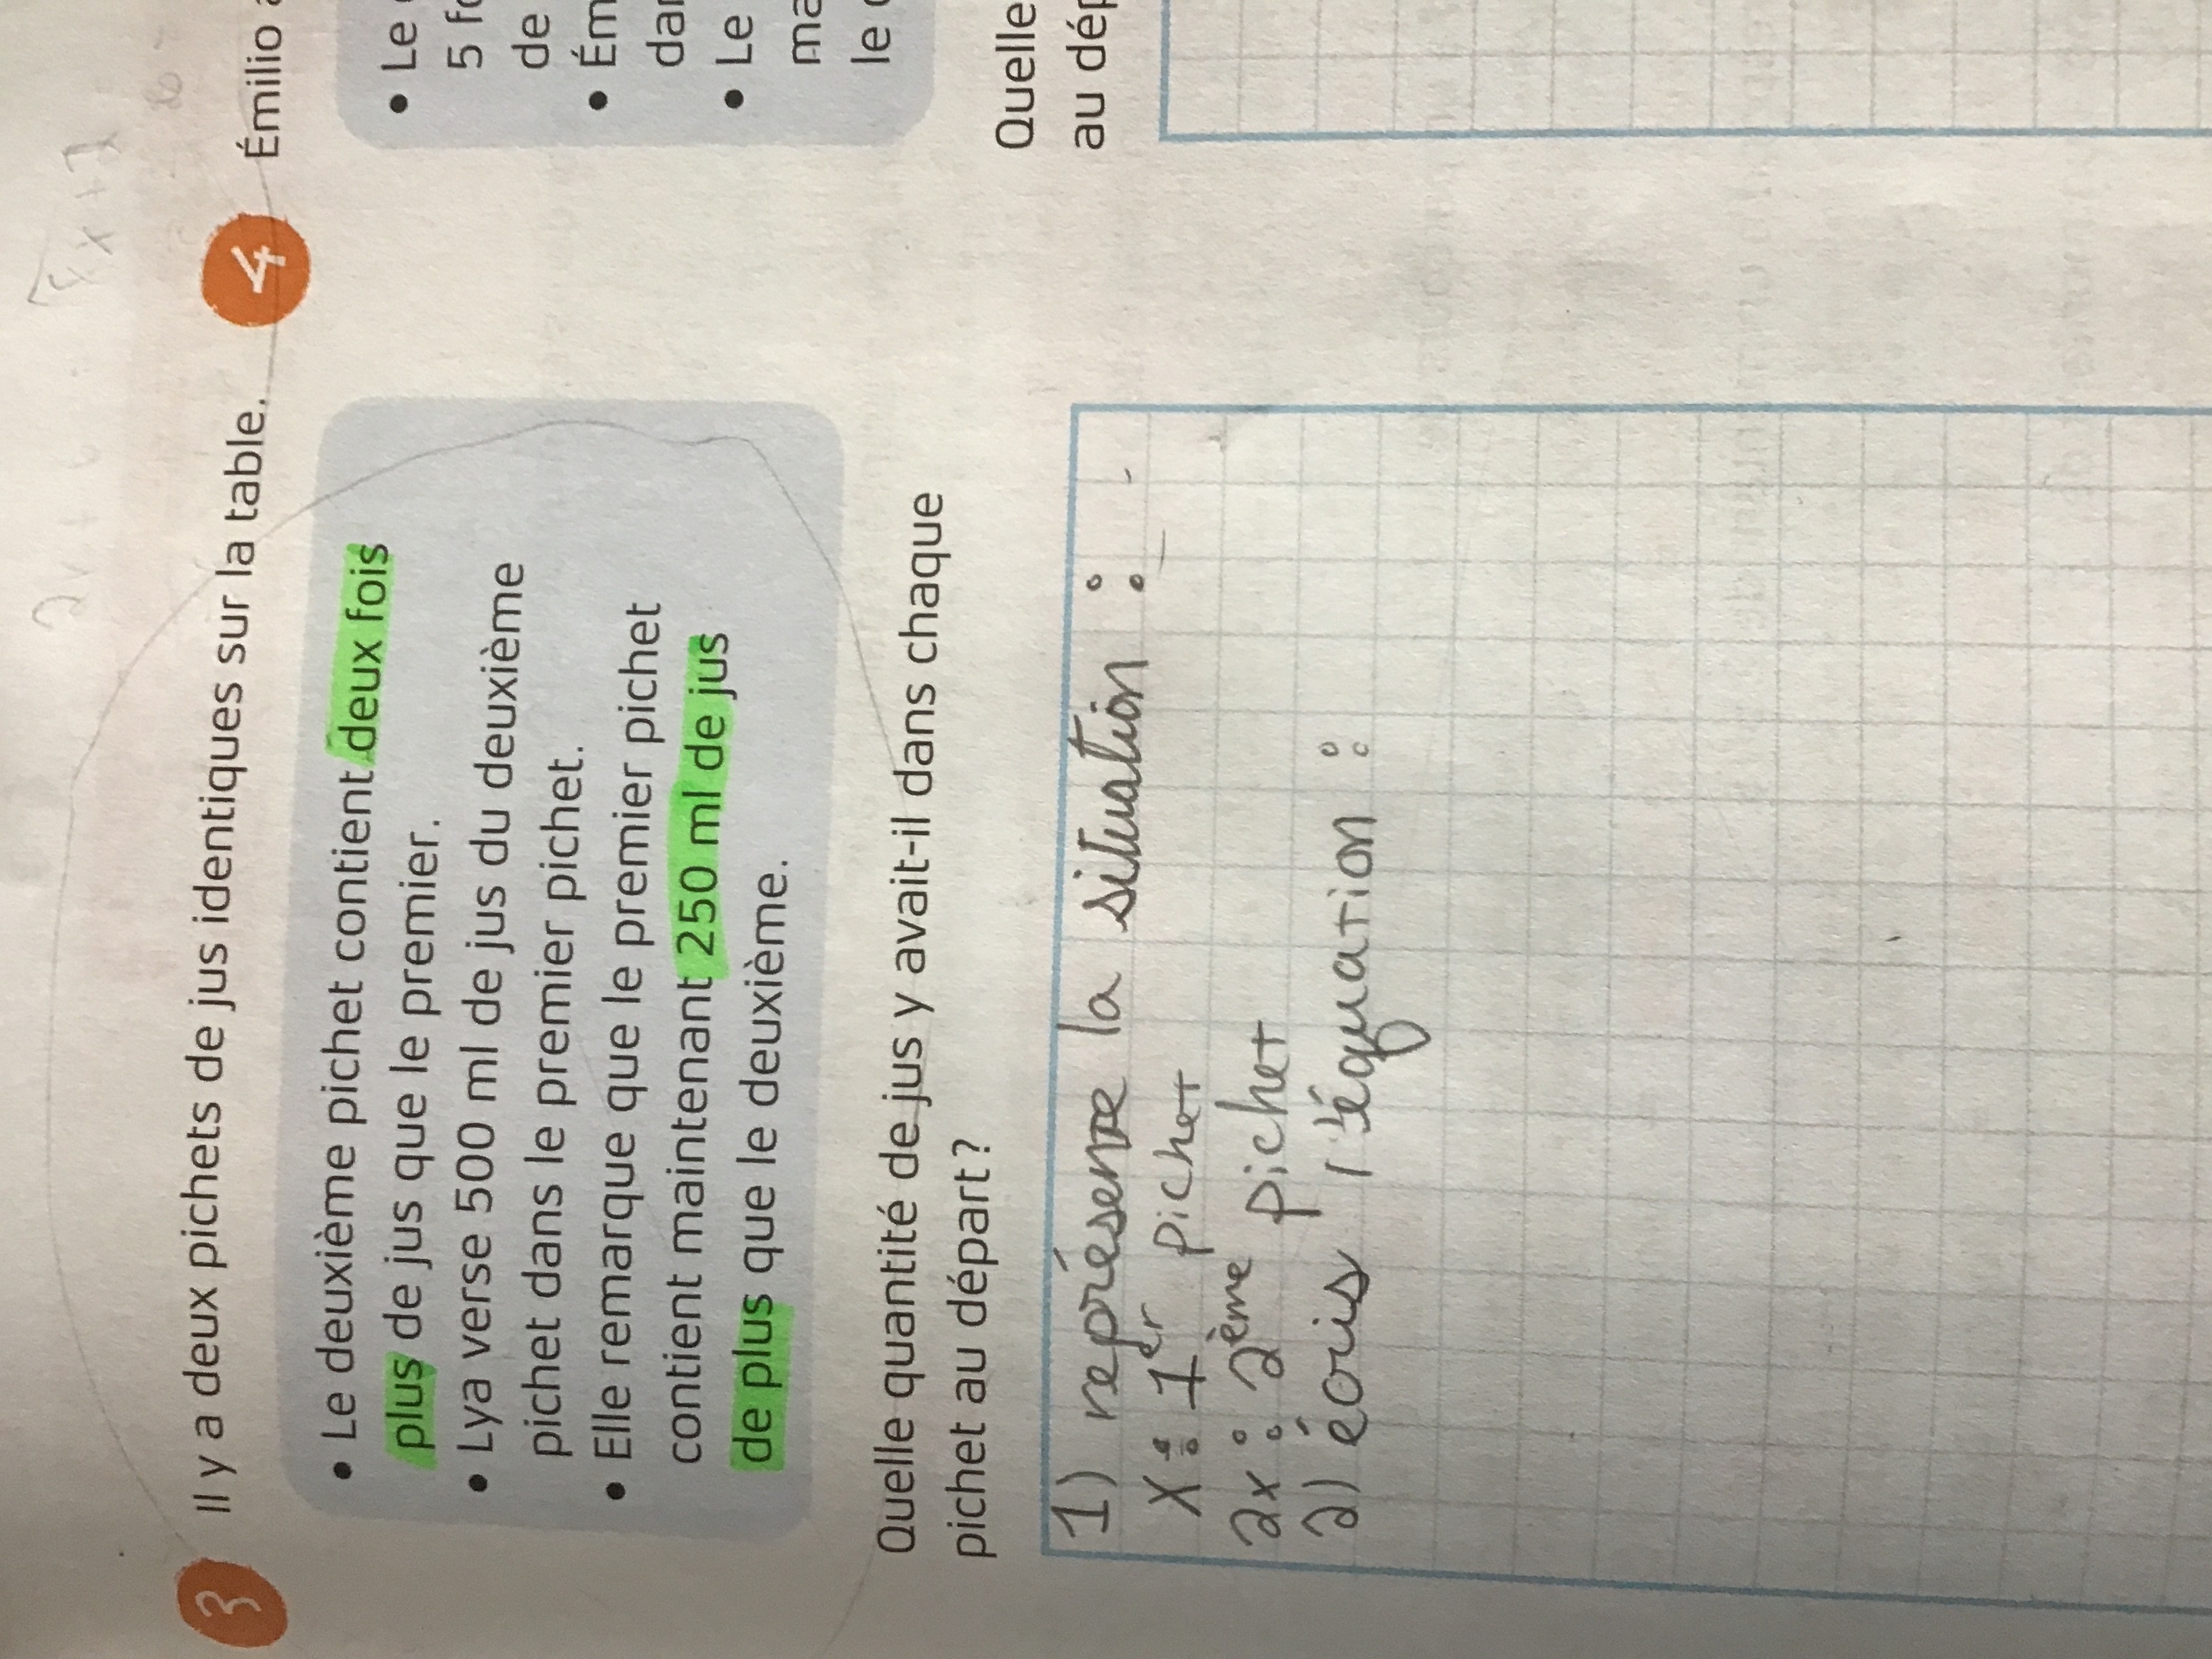 3
Il y a deux pichets de jus identiques sur la table.
• Le deuxième pichet contient deux fois
plus de jus que le premier.
• Lya verse 500 ml de jus du deuxième
pichet dans le premier pichet.
• Elle remarque que le premier pichet
contient maintenant 250 ml de jus
de plus que le deuxième.
Quelle quantité de jus y avait-il dans chaque
pichet au départ?
1) représente la situation :
x : 1er pichet
2x : 2ème pichet
2) écris l'équation :
4
Émilio
• Le
5
de
•
• Le
le
Quelle
au